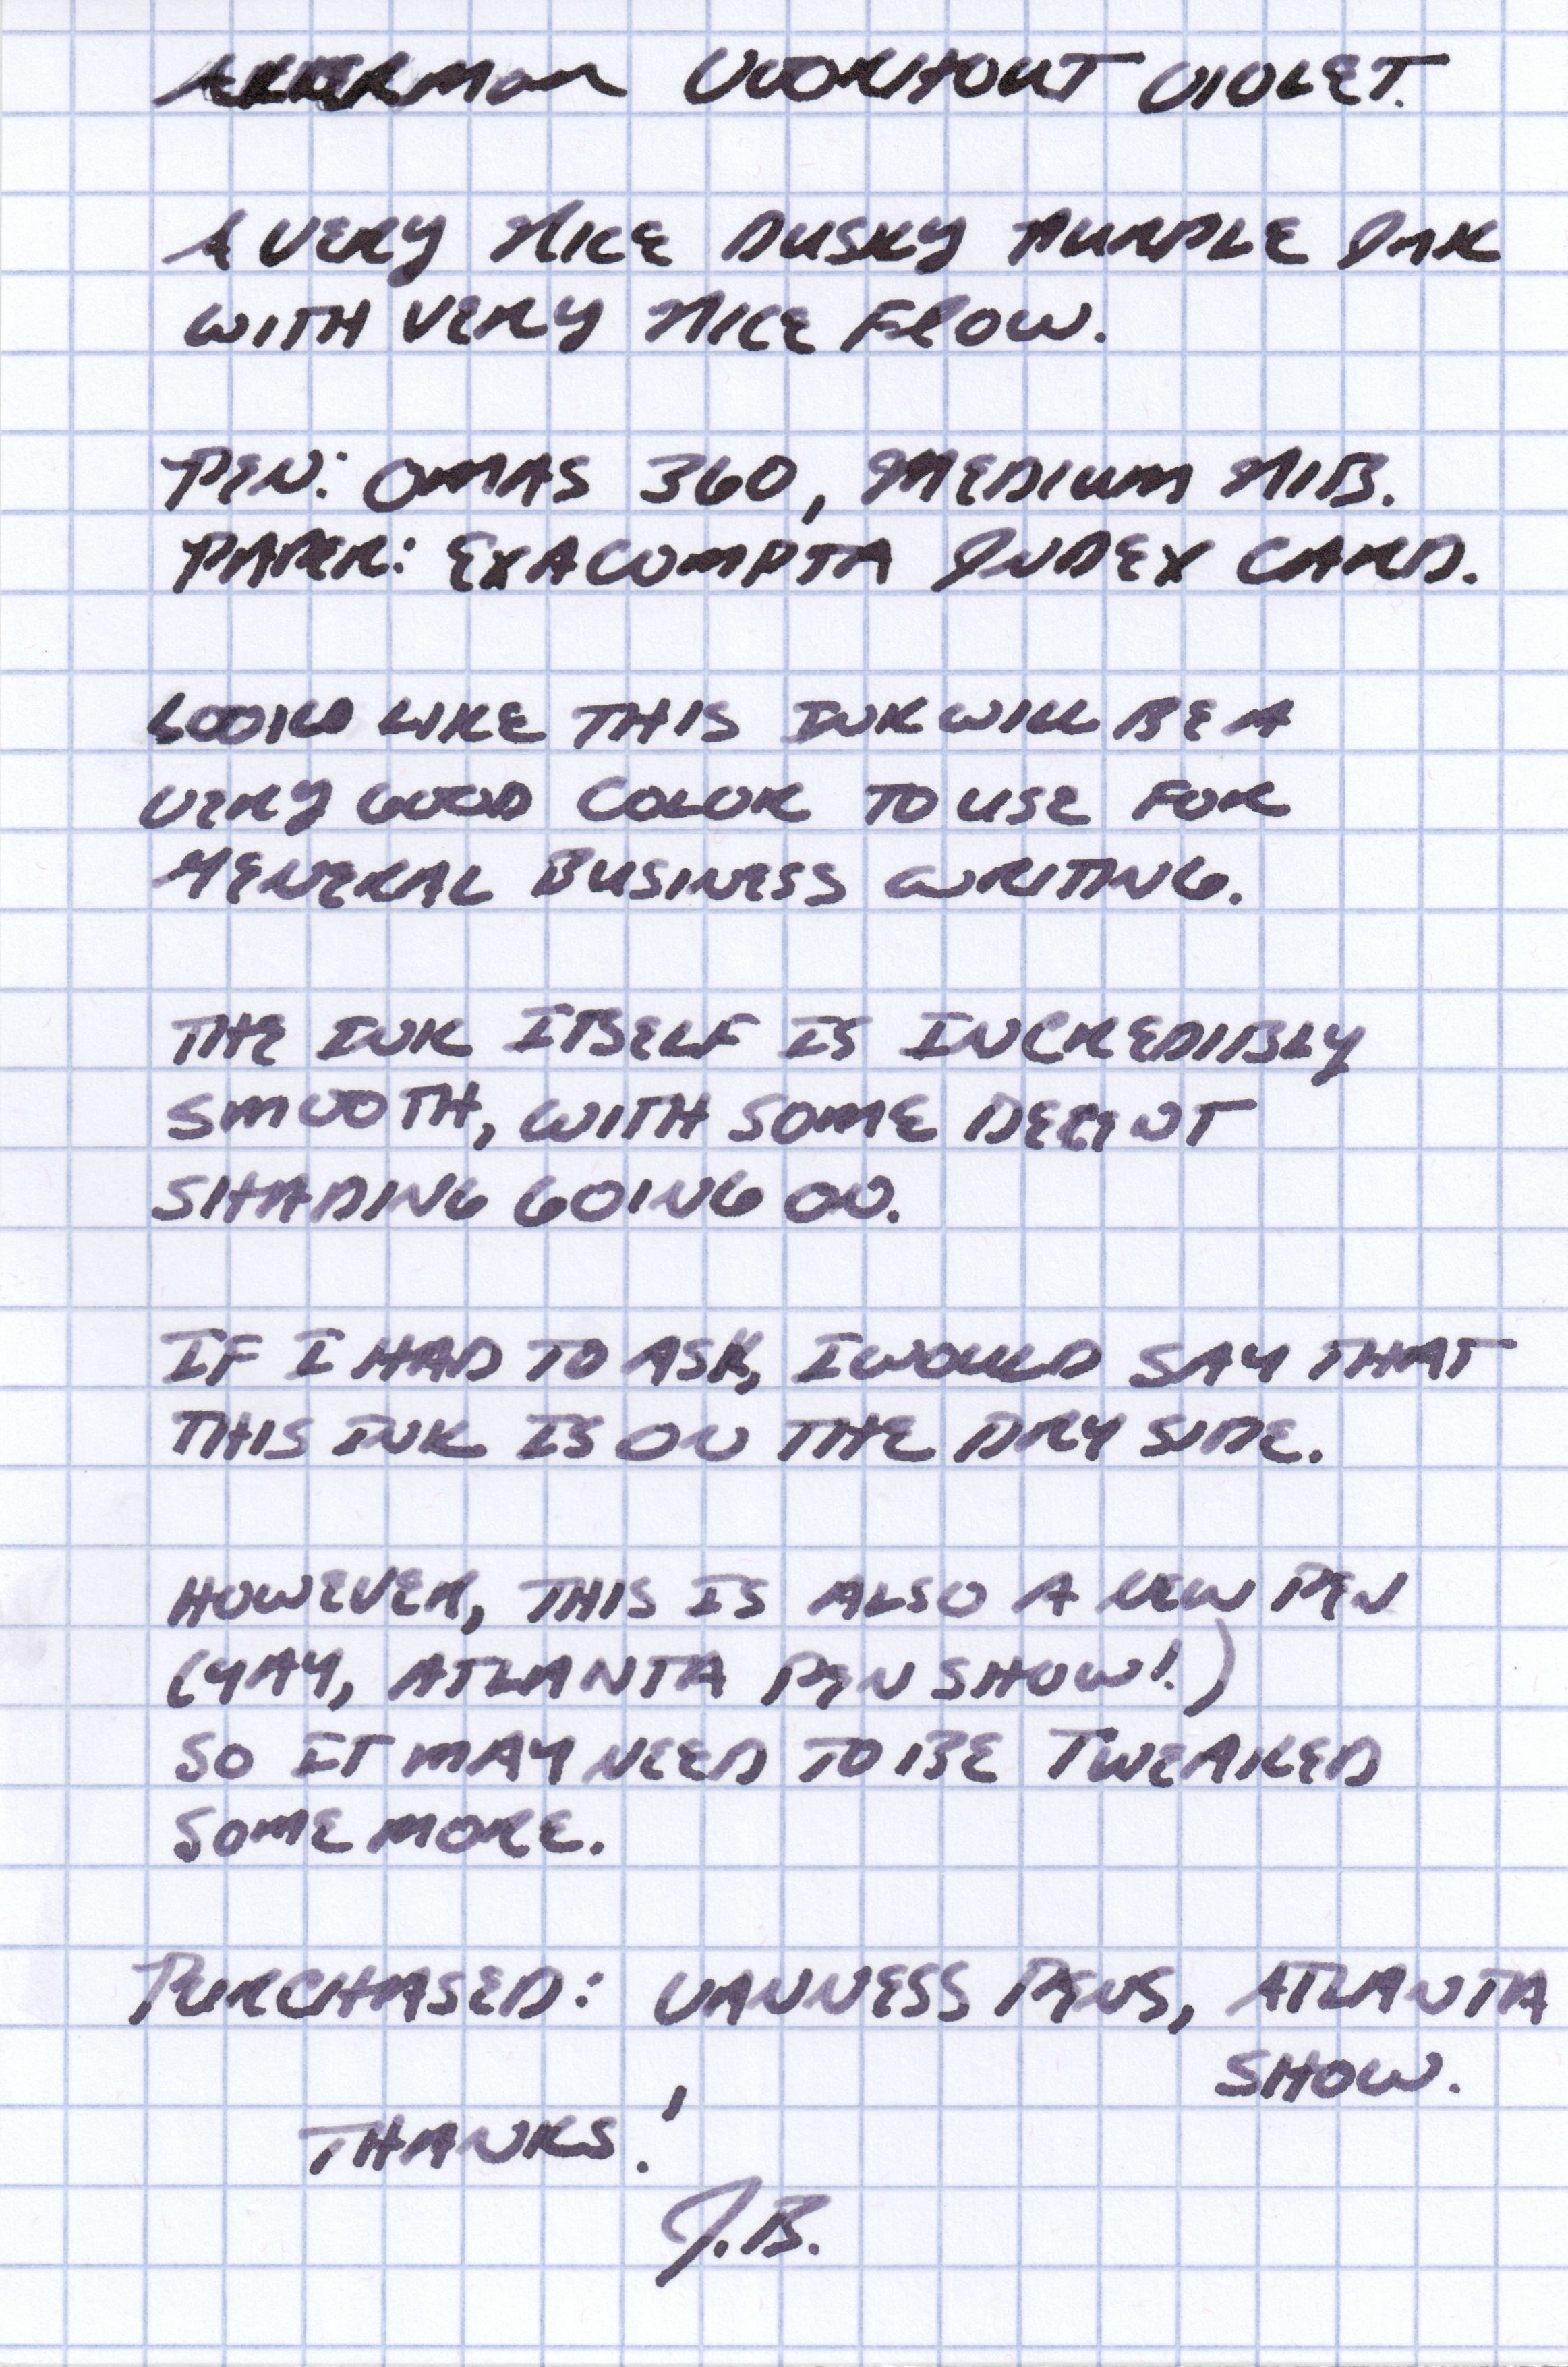 AKKERMAN VOORHOUT VIOLET.
A VERY NICE DUSKY PURPLE INK
WITH VERY NICE FLOW.
PEN: OMAS 360, MEDIUM NIB.
PAPER: EXACOMPTA INDEX CARD.
LOOKS LIKE THIS INK WILL BE A
VERY GOOD COLOR TO USE FOR
GENERAL BUSINESS WRITING.
THE INK ITSELF IS INCREDIBLY
SMOOTH, WITH SOME DECENT
SHADING GOING ON.
IF I HAD TO ASK, I WOULD SAY THAT
THIS INK IS ON THE DRY SIDE.
HOWEVER, THIS IS ALSO A NEW PEN
(YAY, ATLANTA PEN SHOW!)
SO IT MAY NEED TO BE TWEAKED
SOME MORE.
PURCHASED: VANNESS PENS, ATLANTA
SHOW.
THANKS!
J.B.